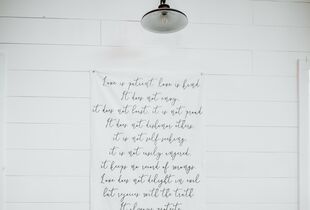 Love is patient, love is kind.
It does not envy,
it does not boast, it is not proud.
It does not dishonor others,
it is not self-seeking,
it is not easily angered,
it keeps no record of wrongs.
Love does not delight in evil
but rejoices with the truth.
It always protects,